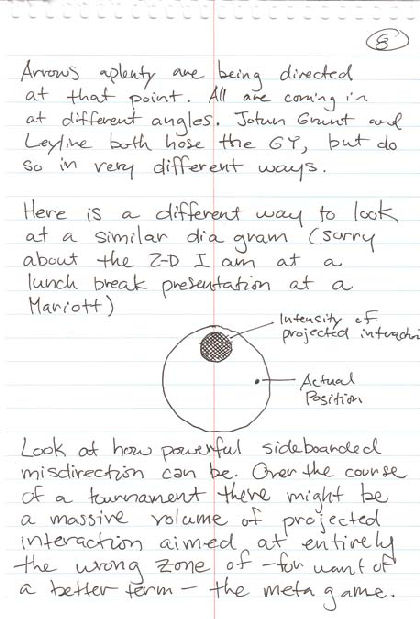 8
Arrows aplenty are being directed
at that point. All are coming in
at different angles. Jotun Grunt and
Leyline both hose the GY, but do
so in very different ways.
Here is a different way to look
at a similar diagram (sorry
about the 2-D I am at a
lunch break presentation at a
Mariott)
Intensity of
projected interacti
Actual
Position
Look at how powerful sideboarded
misdirection can be. Over the course
of a tournament there might be
a massive volume of projected
interaction aimed at entirely
the wrong zone of - for want of
a better term - the metagame.